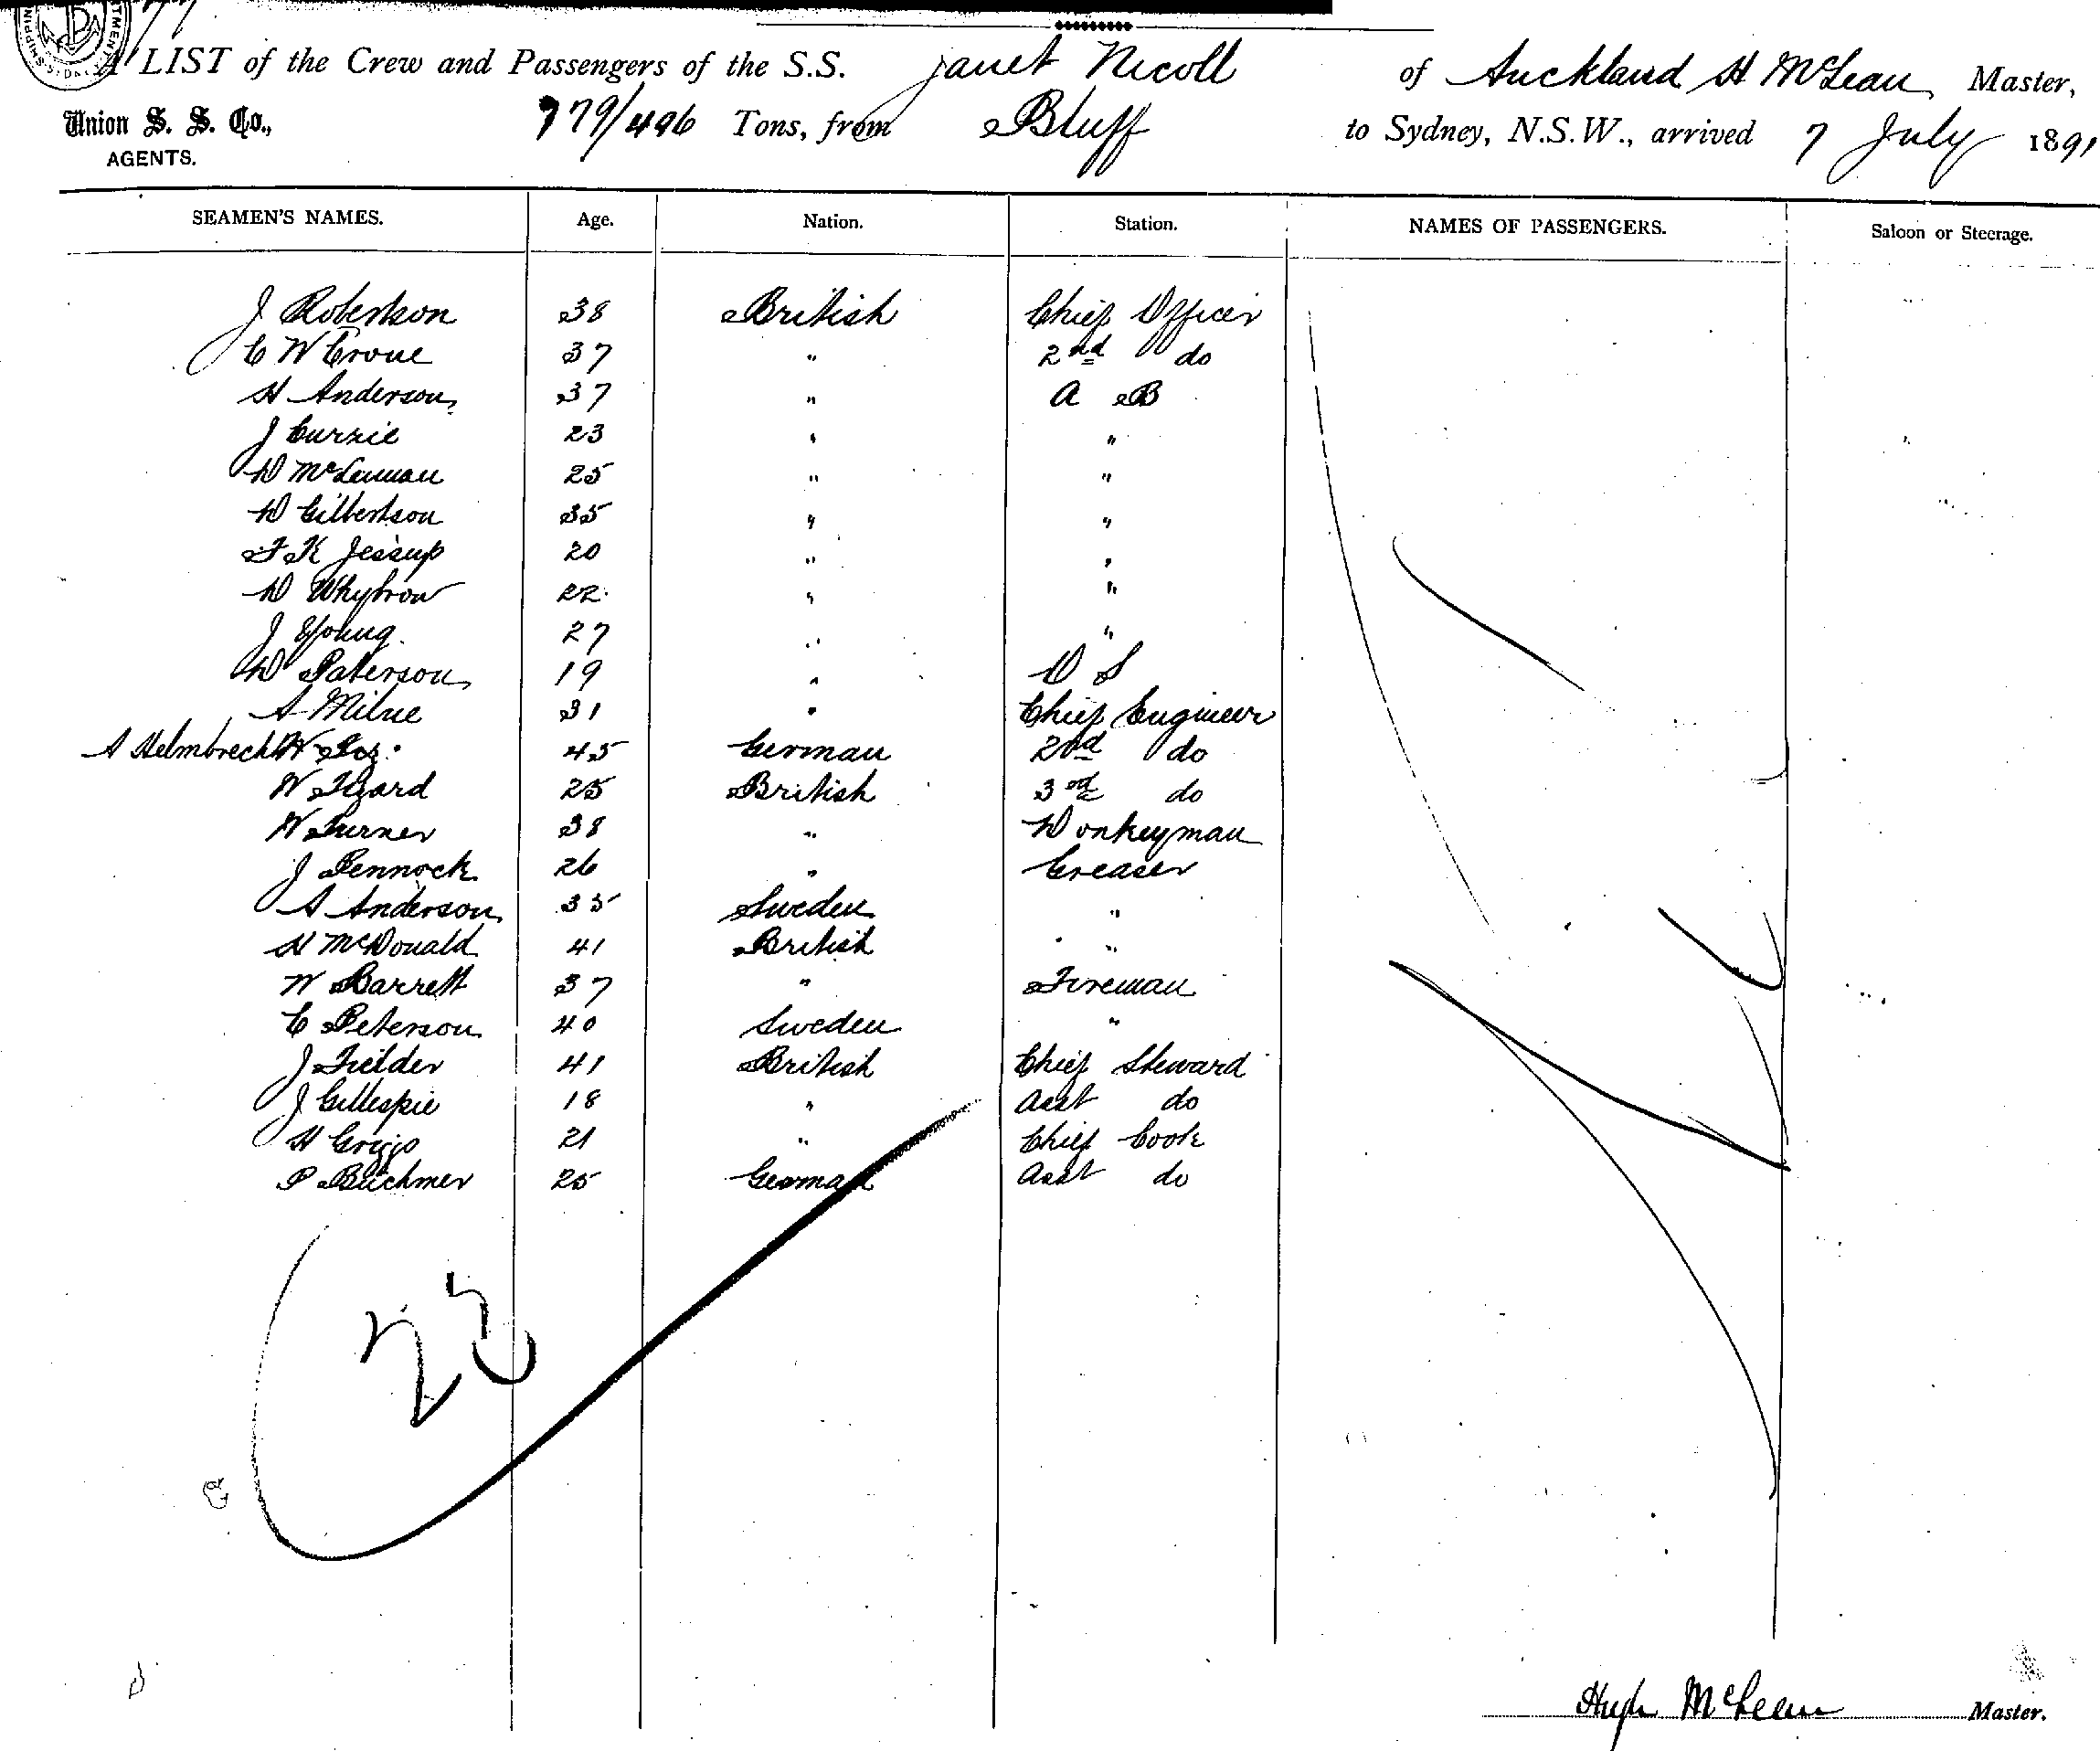 A LIST of the Crew and Passengers of the S.S. Janet Nicoll of Auckland H McLean Master,
Union S. S. Co., 779/496 Tons, from Bluff to Sydney, N.S.W., arrived 7 July 1891
AGENTS.
SEAMEN'S NAMES. Age. Nation. Station. NAMES OF PASSENGERS. Saloon or Steerage.
J Robertson 38 British Chief Officer
C W Crone 37 " 2nd do
H Anderson 37 " A B
J Currie 23 " "
D McLennan 25 " "
D Gilbertson 35 " "
F K Jessup 20 " "
D Whybrow 22 " "
J Young 27 " "
D Paterson 19 " O S
A Milne 31 " Chief Engineer
A Helmbrecht 45 German 2nd do
W Izard 25 British 3rd do
W Turner 38 " Donkeyman
J Pennock 26 " Greaser
A Anderson 35 Sweden "
H McDonald 41 British "
W Barrett 37 " Fireman
C Peterson 40 Sweden "
J Fielder 41 British Chief Steward
J Gillespie 18 " Asst do
H Griggs 21 " Chief Cook
P Buchmer 25 German Asst do
23
Hugh McLean Master.